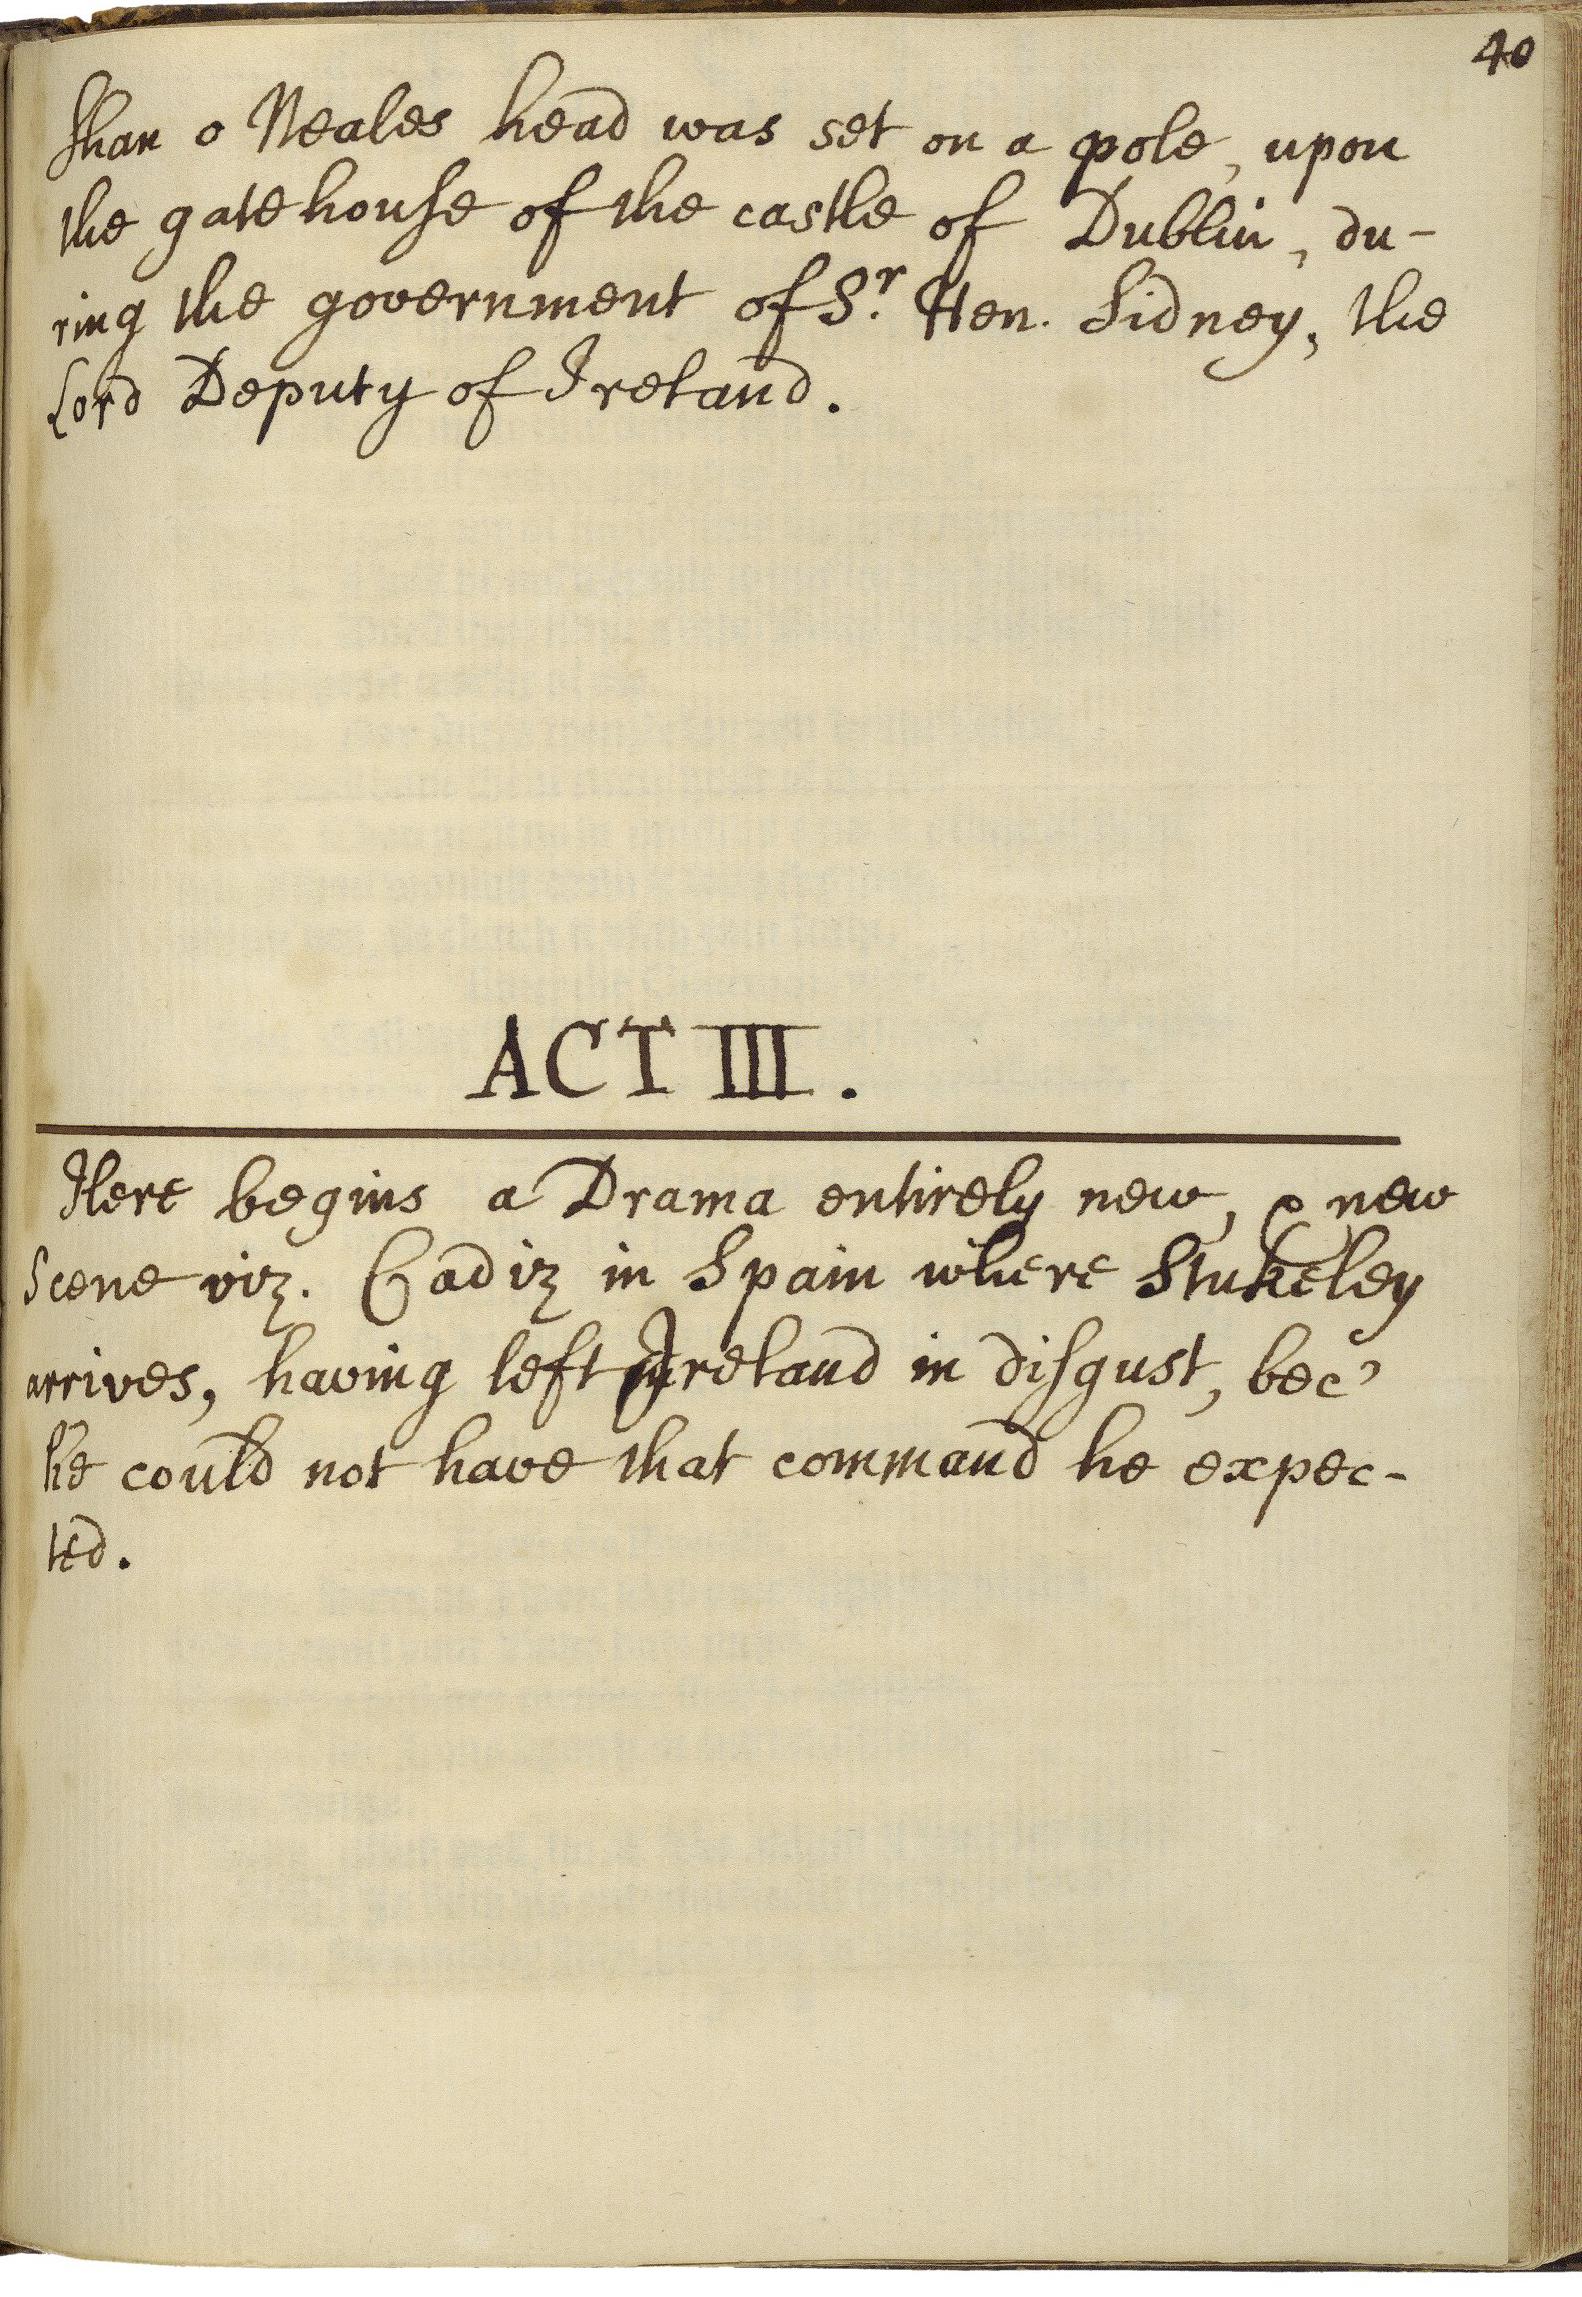 40
Shan o Neales head was set on a pole, upon
the gatehouse of the castle of Dublin, du-
ring the government of Sr. Hen. Sidney, the
Lord Deputy of Ireland.
ACT III.
Here begins a Drama entirely new, & new
Scene viz. Cadiz in Spain where Stukeley
arrives, having left Ireland in disgust, bec'
he could not have that command he expec-
ted.